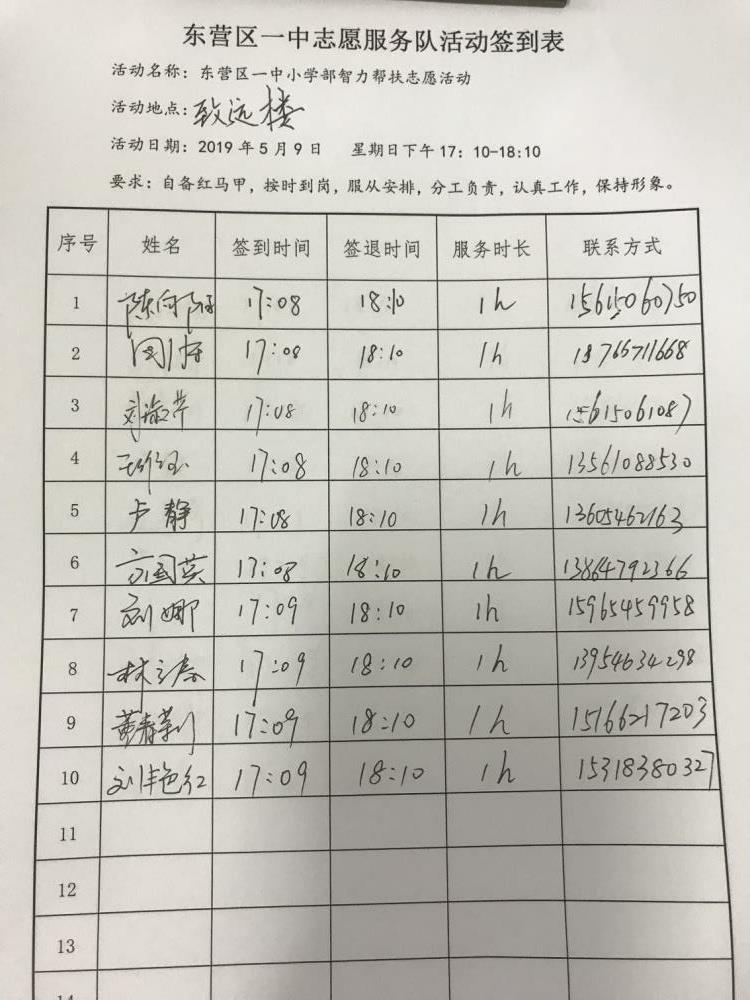 东营区一中志愿服务队活动签到表
活动名称：东营区一中小学部智力帮扶志愿活动
活动地点：致远楼
活动日期：2019年5月9日 星期日下午17：10-18:10
要求：自备红马甲，按时到岗，服从安排，分工负责，认真工作，保持形象。
序号 姓名 签到时间 签退时间 服务时长 联系方式
1 17:08 18:10 1h 15615060750
2 17:08 18:10 1h 13766711668
3 刘淑芹 17:08 18:10 1h 15615061087
4 17:08 18:10 1h 13561088530
5 卢静 17:08 18:10 1h 13605462163
6 17:08 18:10 1h 13864792366
7 刘娜 17:09 18:10 1h 15965459958
8 林立春 17:09 18:10 1h 13954634298
9 黄春莉 17:09 18:10 1h 15166217203
10 刘艳红 17:09 18:10 1h 15318380327
11
12
13